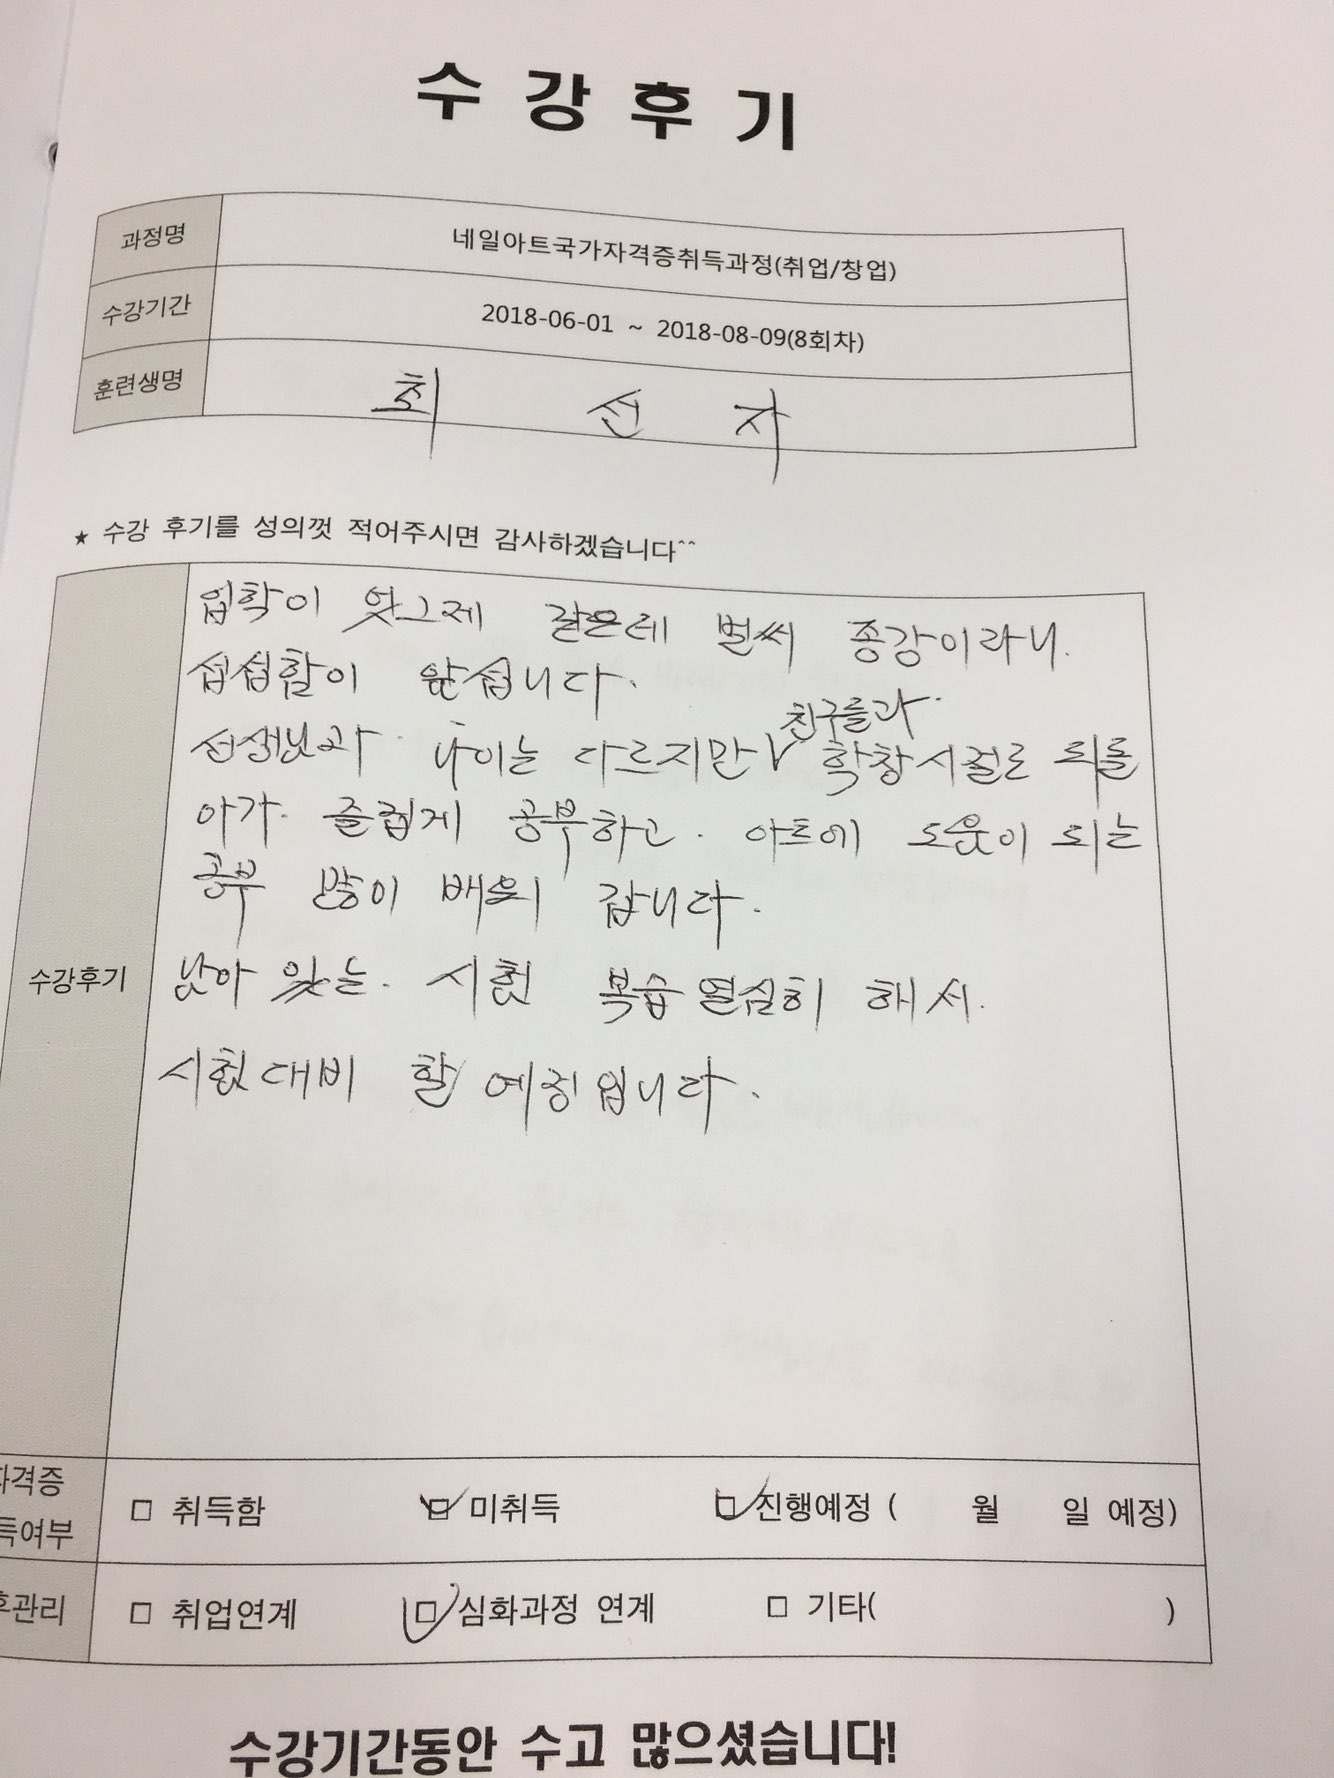 수강후기
과정명 네일아트국가자격증취득과정(취업/창업)
수강기간 2018-06-01 ~ 2018-08-09(8회차)
훈련생명 최 선 자
★ 수강 후기를 성의껏 적어주시면 감사하겠습니다^^
입학이 엇그제 같은데 벌써 종강이라니.
섭섭함이 앞섭니다.
친구들과
선생님과 나이는 다르지만 V 학창시절로 되돌
아가. 즐겁게 공부하고. 아트에 도움이 되는
공부 많이 배워 갑니다.
수강후기
남아 있는. 시험 복습 열심히 해서.
시험대비 할 예정입니다.
자격증
득여부
□ 취득함 ☑ 미취득 ☑ 진행예정 ( 월 일 예정)
후관리 □ 취업연계 ☑ 심화과정 연계 □ 기타( )
수강기간동안 수고 많으셨습니다!